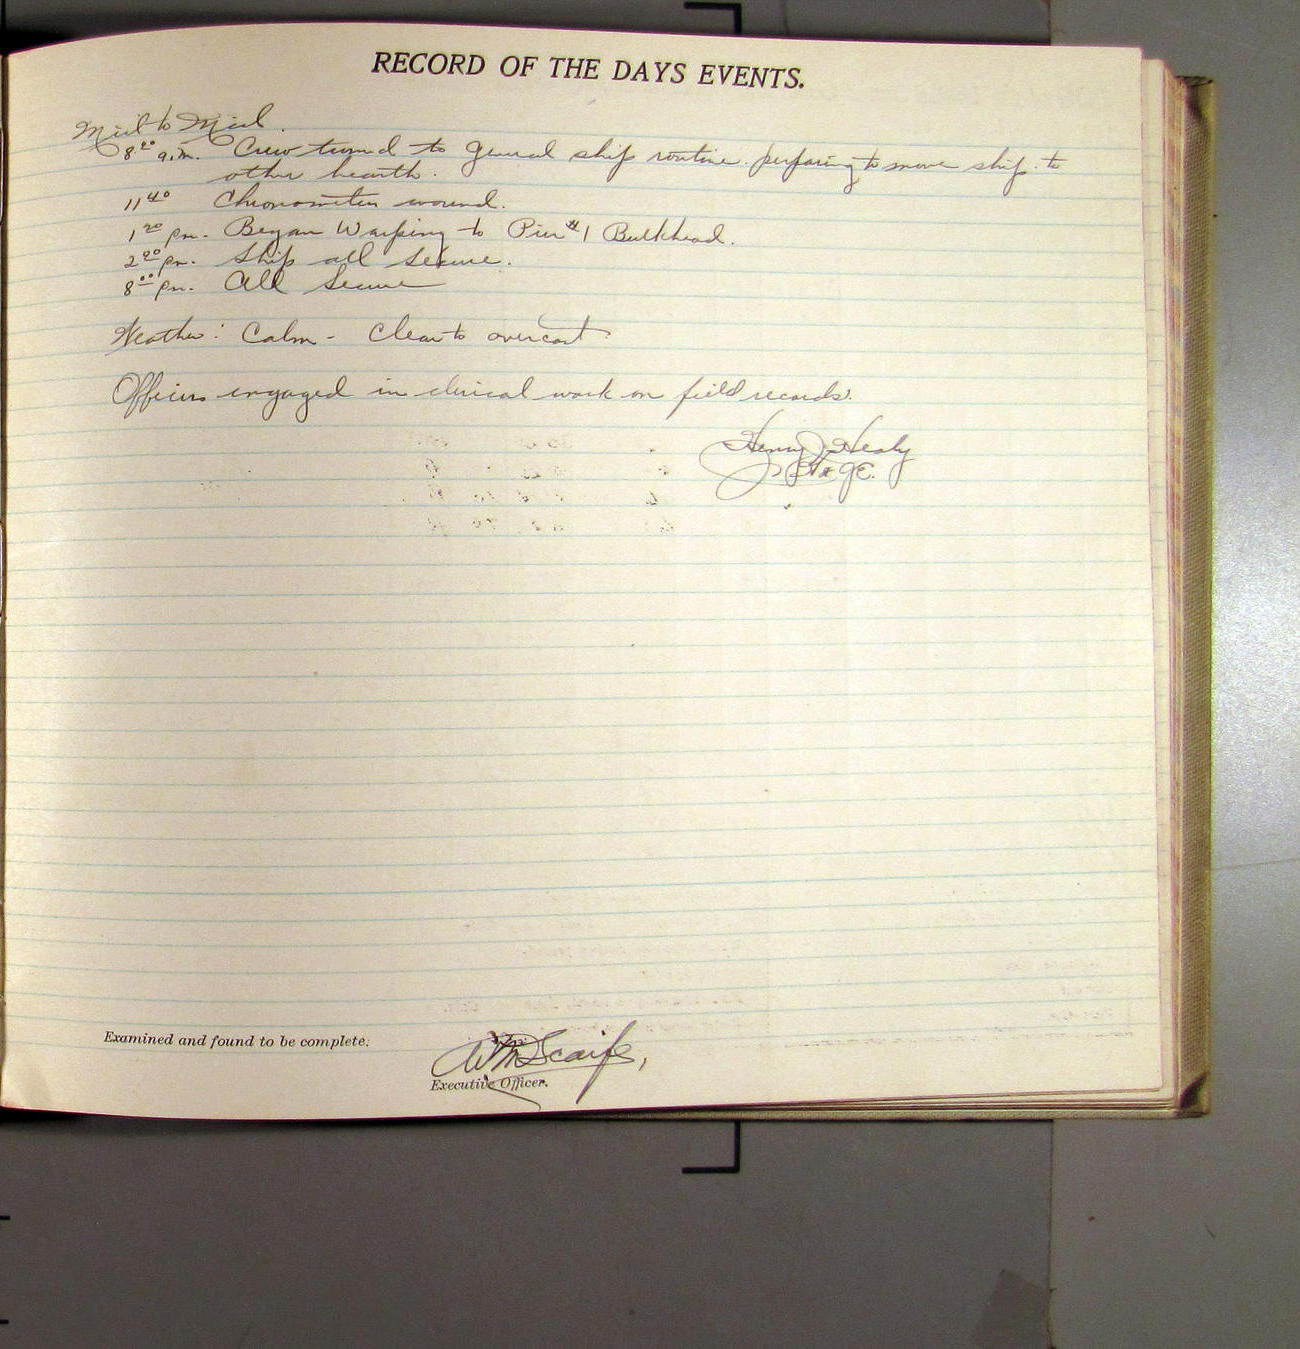 RECORD OF THE DAYS EVENTS.
Mid to Mid.
8 20 a.m. Crew turned to general ship routine. preparing to move ship to
other bearth.
11 40 Chronometers wound.
1 20 pm. Began Warping to Pier #1 Bulkhead.
2 20 pm. Ship all secure.
8 00 pm. All Secure
Weather: Calm - Clear to overcast
Officers engaged in clerical work on field records.
Henry J Healy
Examined and found to be complete:
Wm Scaife,
Executive Officer.